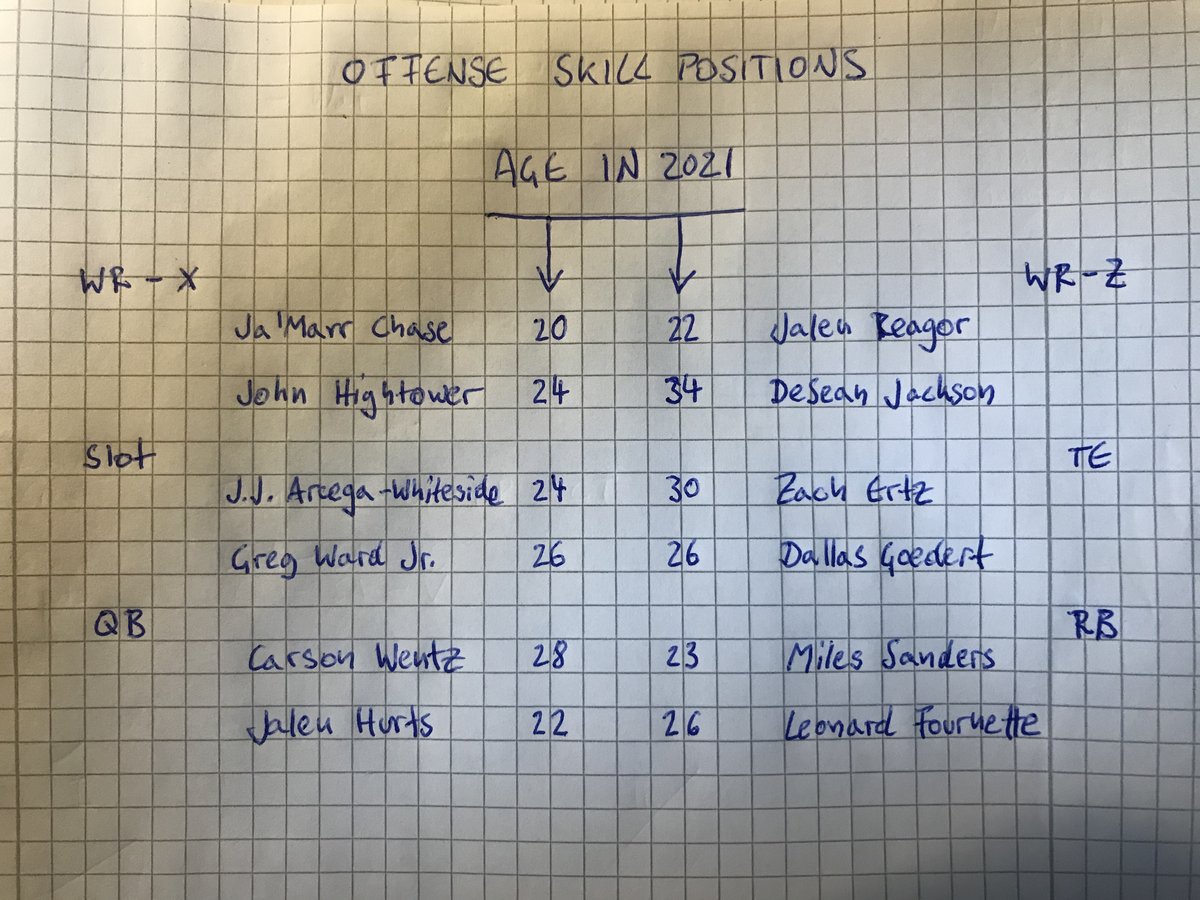 OFFENSE SKILL POSITIONS
AGE IN 2021
WR - X WR - Z
Ja'Marr Chase 20 22 Jalen Reagor
John Hightower 24 34 DeSean Jackson
Slot TE
J.J. Arcega-Whiteside 24 30 Zach Ertz
Greg Ward Jr. 26 26 Dallas Goedert
QB RB
Carson Wentz 28 23 Miles Sanders
Jalen Hurts 22 26 Leonard Fournette